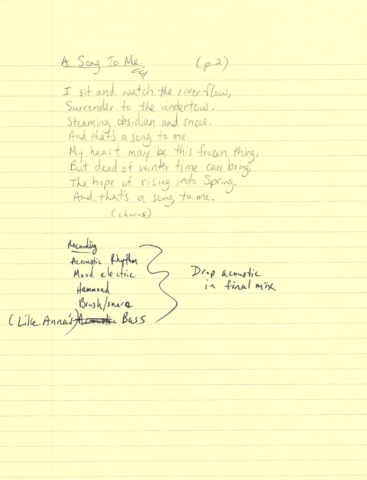 A Song To Me (p.2)
I sit and watch the river flow,
Surrender to the undertow.
Steaming obsidian and snow.
And that's a song to me.
My heart may be this frozen thing,
But dead of winter time can bring,
The hope of rising into Spring,
And that's a song to me.
(chorus)
Recording
Acoustic Rhythm
Mood electric
Hammond
Brush/snare
(Like Anna's) Bass
Drop acoustic
in final mix